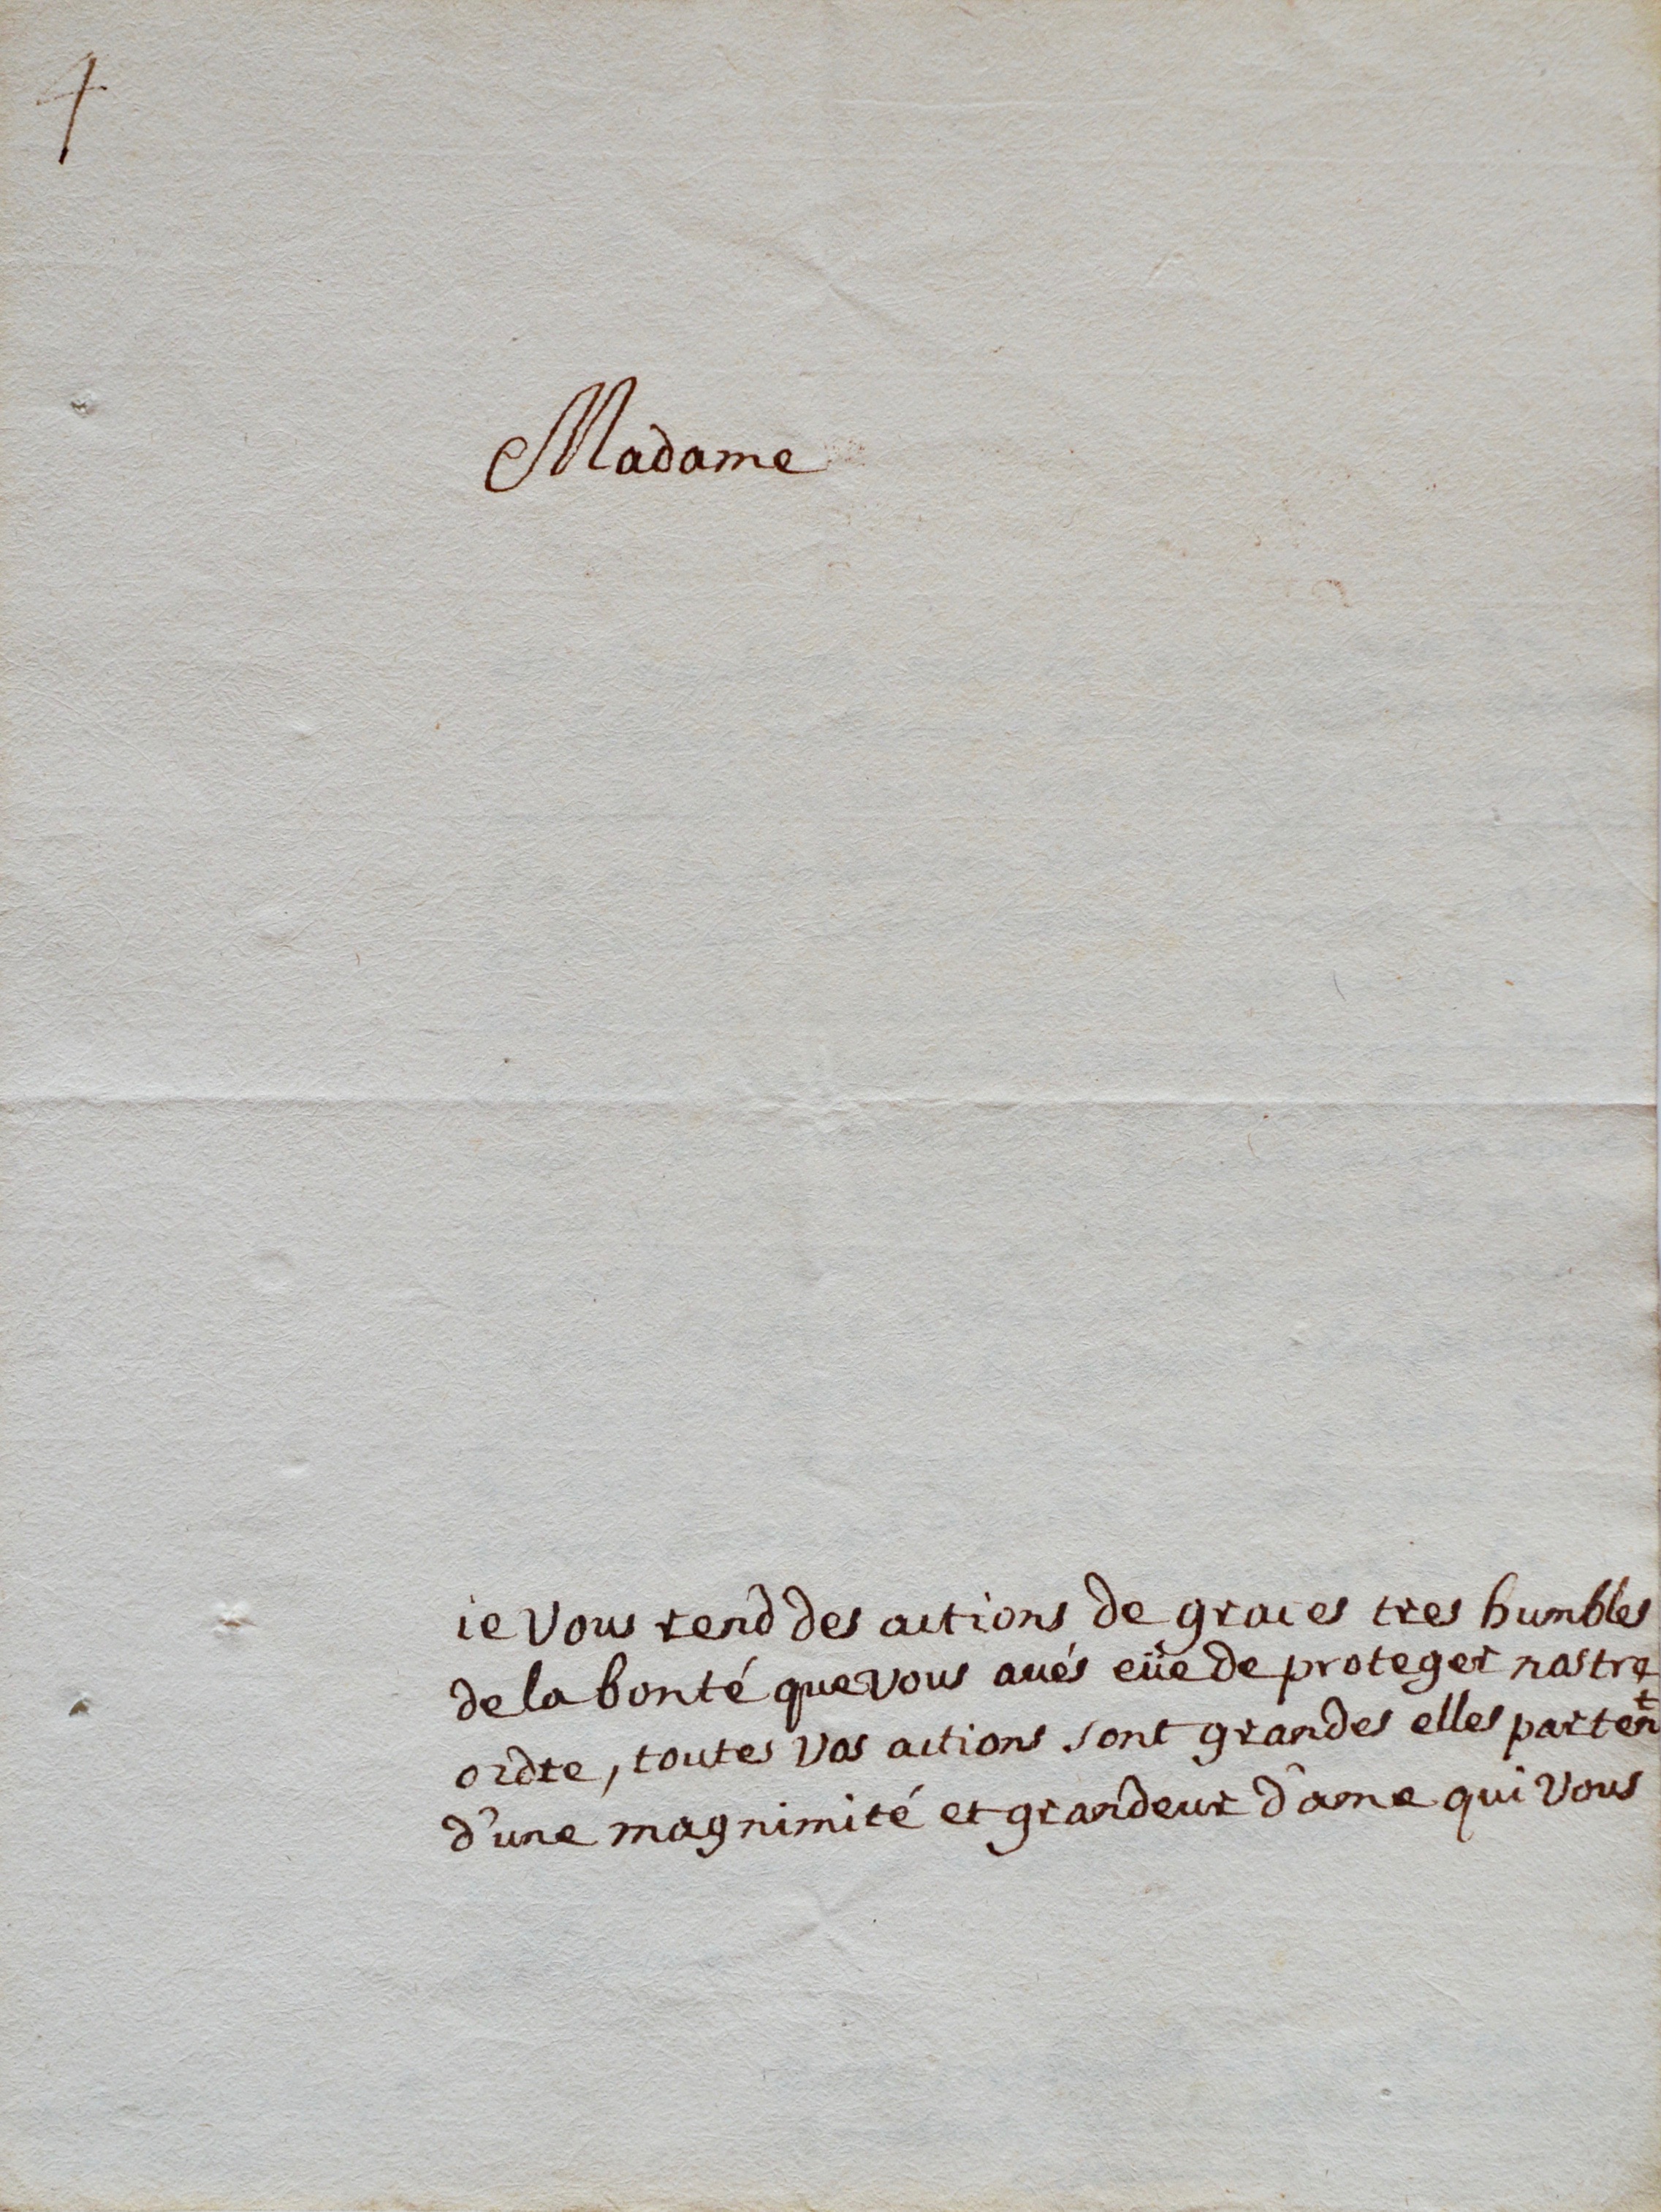 4
Madame
ie Vous rend des actions de graces tres humbles
de la bonté que vous aués eüe de proteger nostre
ordre, toutes vos actions sont grandes elles partent
d'une magnimité et grandeur d'ame qui Vous